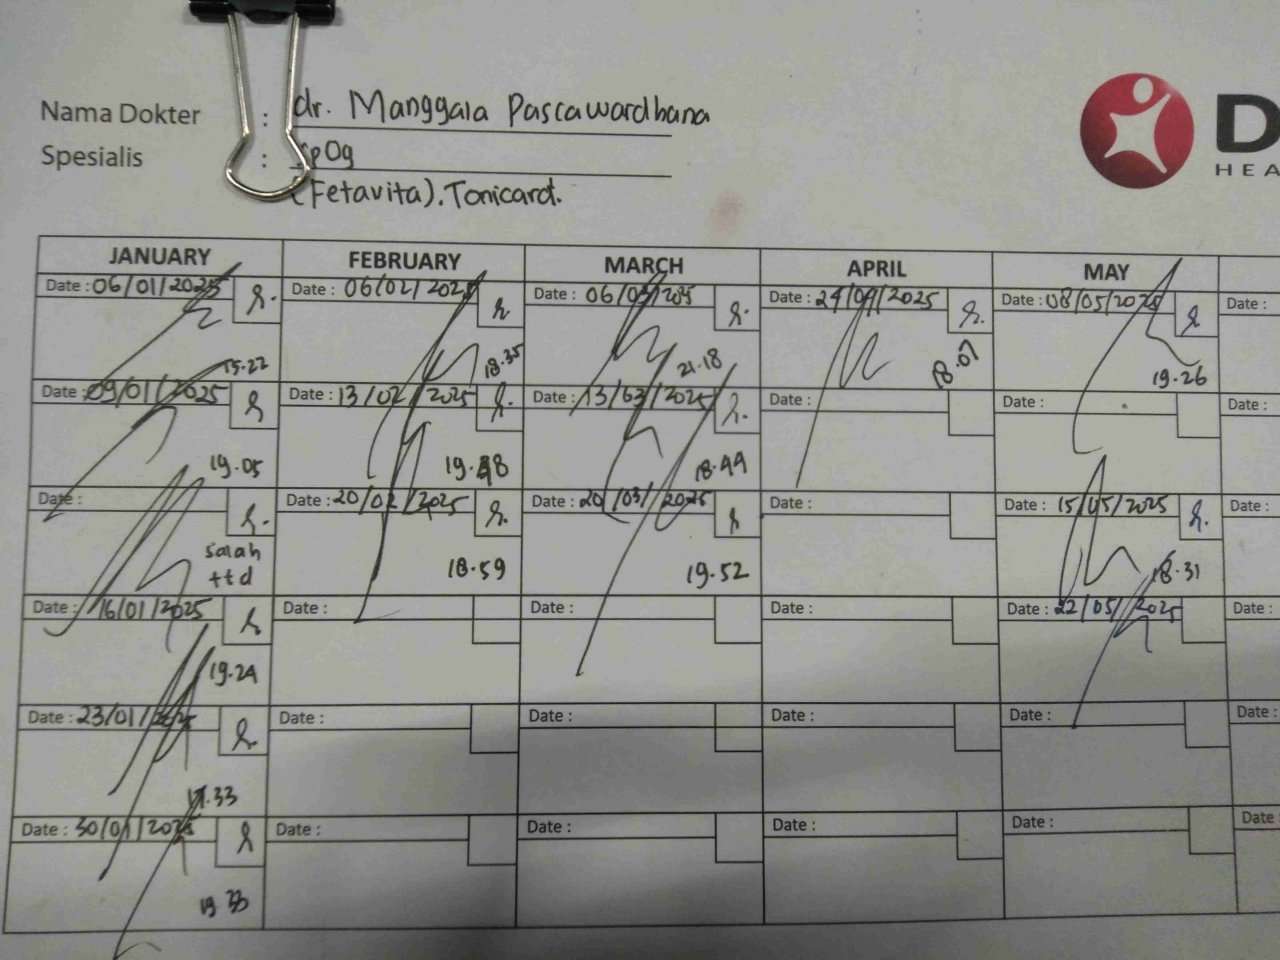 Nama Dokter : dr. Manggala Pascawardhana
Spesialis : SpOg
(Fetavita). Tonicard.
D
HEA
JANUARY FEBRUARY MARCH APRIL MAY
Date : 06/01/2025 Date : 06/02/2025 Date : 06/03/2025 Date : 24/04/2025 Date : 08/05/2025 Date :
15.22 18.35 21.18 18.07 19.26
Date : 09/01/2025 Date : 13/02/2025 Date : 13/03/2025 Date : Date : Date :
19.05 19.48 18.49
Date : Date : 20/02/2025 Date : 20/03/2025 Date : Date : 15/05/2025 Date :
Salah ttd 18.59 19.52 18.31
Date : 16/01/2025 Date : Date : Date : Date : 22/05/2025 Date :
19.24
Date : 23/01/2025 Date : Date : Date : Date : Date :
Date : 30/01/2025 Date : Date : Date : Date : Date
19.33